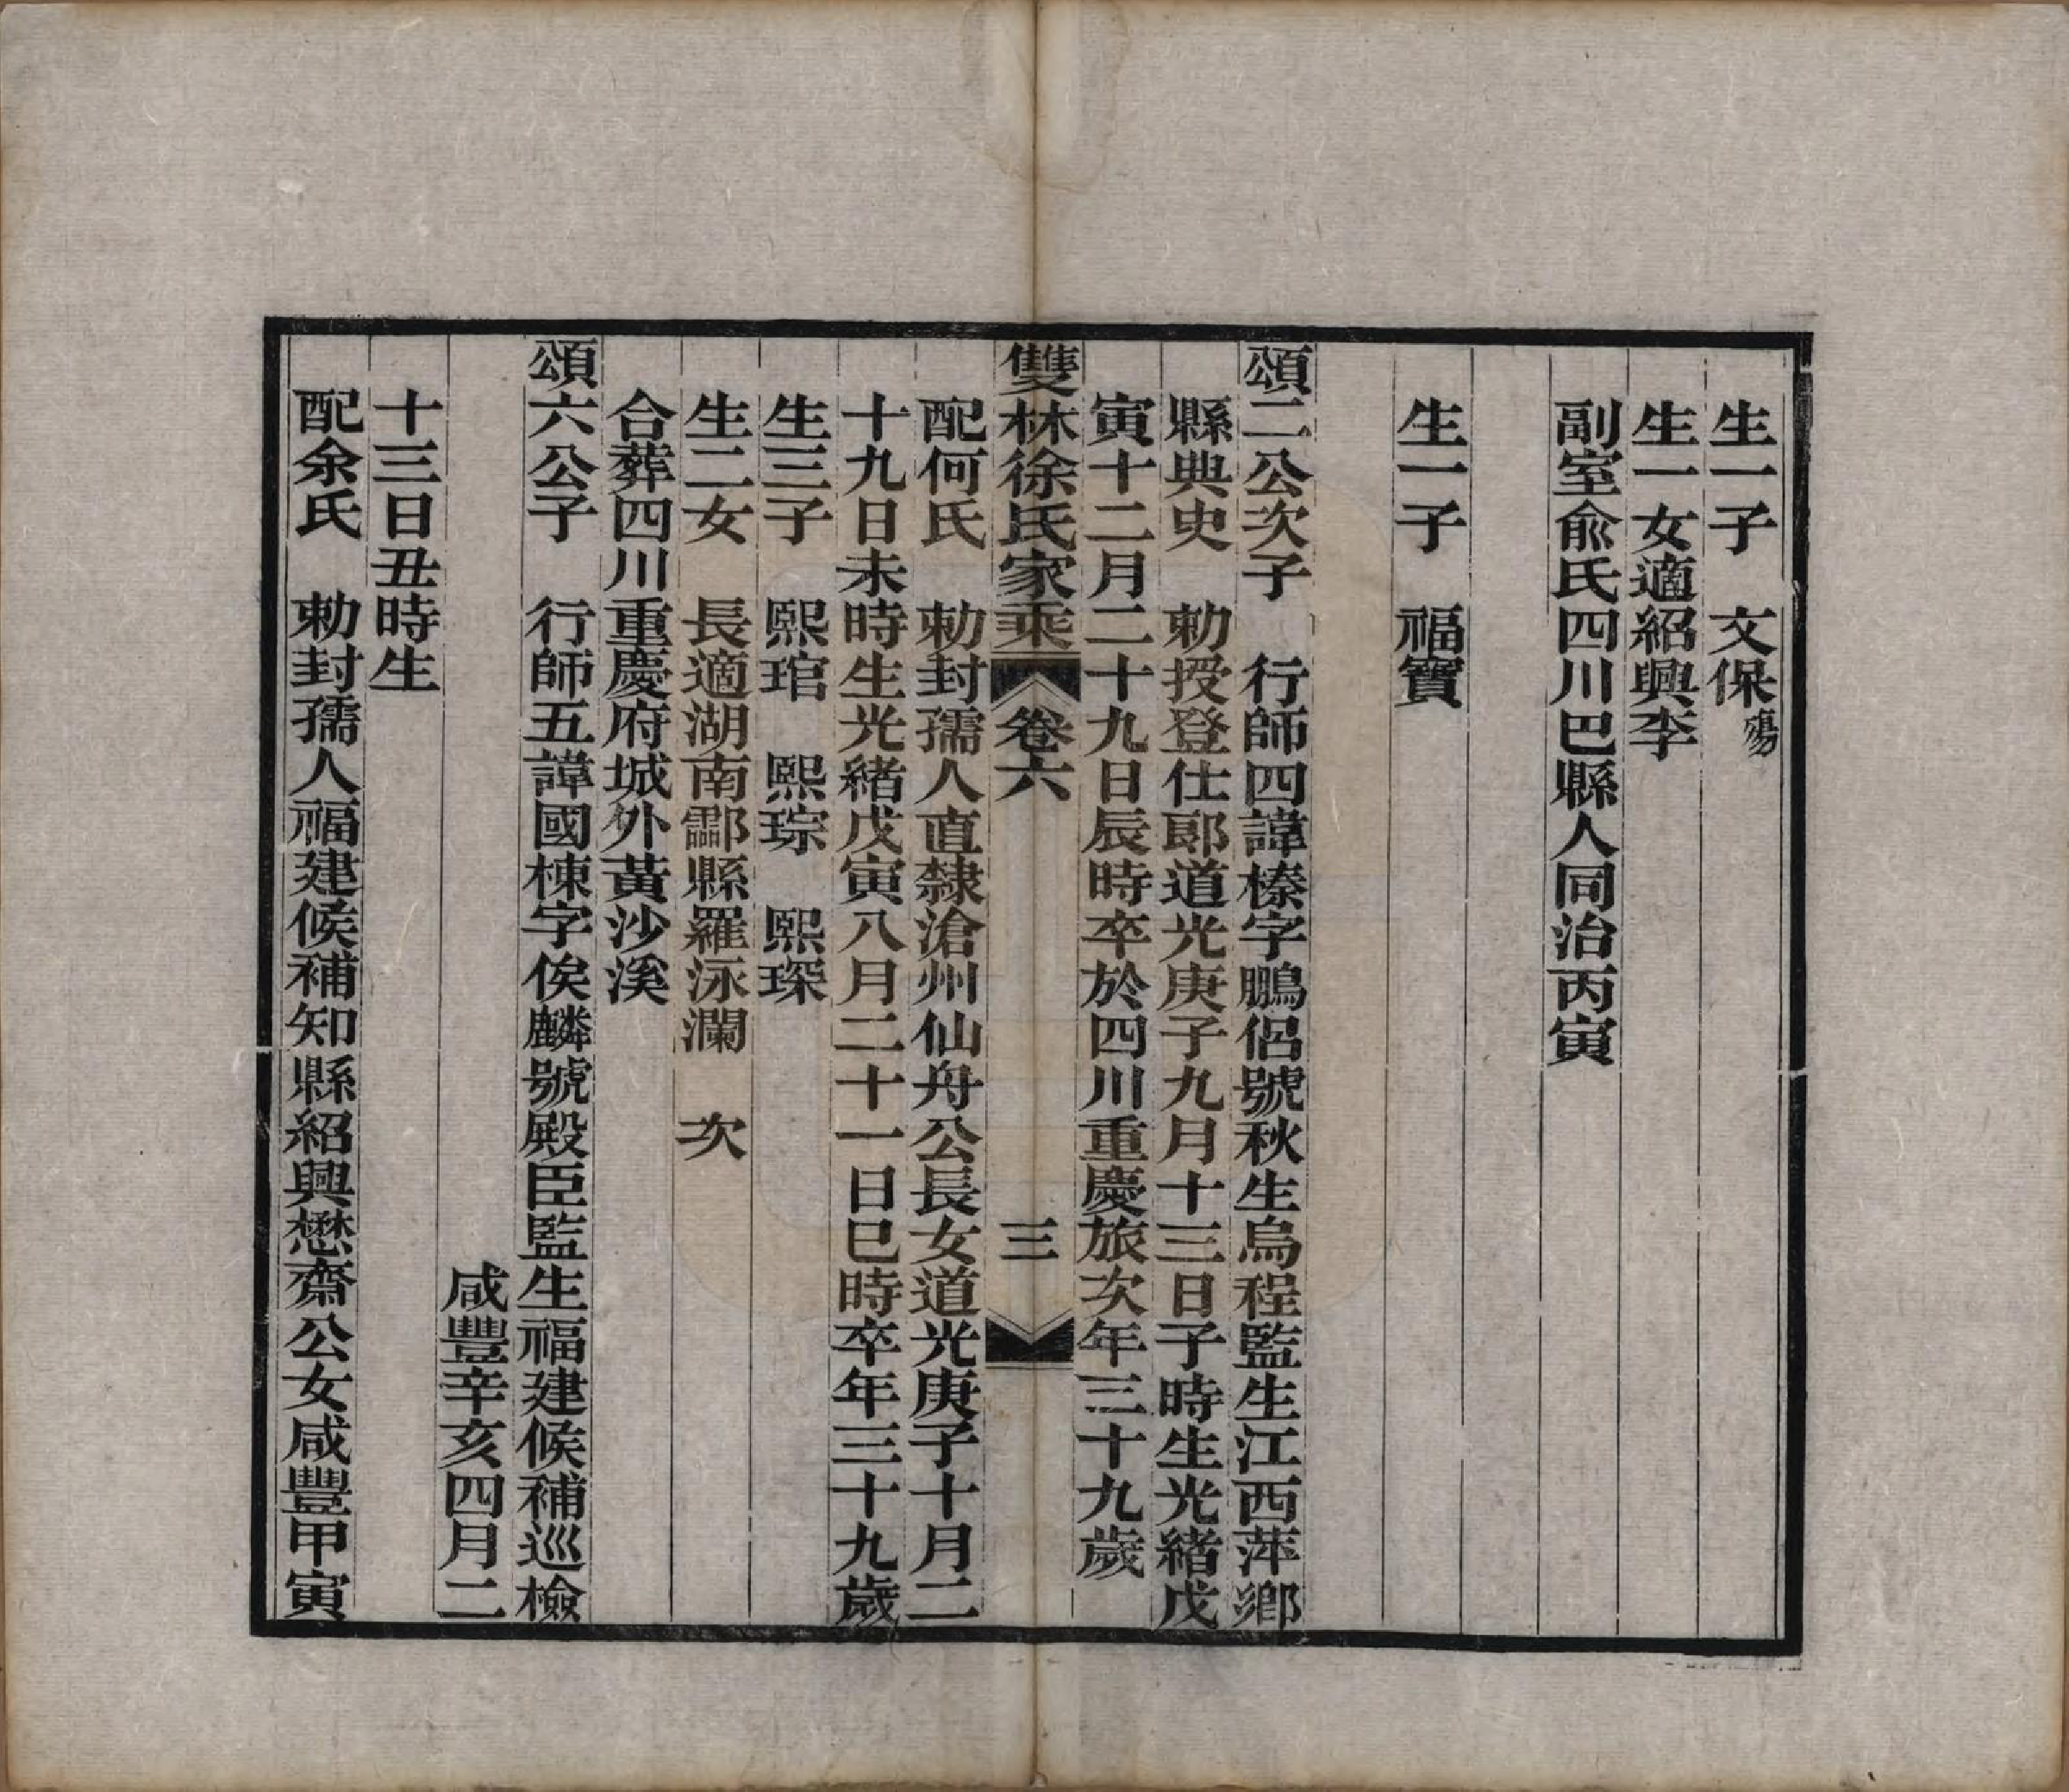 生一子　文保殤
生一女適紹興李
副室俞氏四川巴縣人同治丙寅
生一子　福寶
頌二公次子　行師四諱榛字鵬侶號秋生烏程監生江西萍鄉
縣典史　勅授登仕郎道光庚子九月十三日子時生光緒戊
寅十二月二十九日辰時卒於四川重慶旅次年三十九歲
雙林徐氏家乘　卷六　三
配何氏　勅封孺人直隸滄州仙舟公長女道光庚子十月二
十九日未時生光緒戊寅八月二十一日巳時卒年三十九歲
生三子　熙琯　熙琮　熙琛
生二女　長適湖南酃縣羅泳瀾　次
合葬四川重慶府城外黃沙溪
頌六公子　行師五諱國棟字俟麟號殿臣監生福建候補巡檢
咸豐辛亥四月二
十三日丑時生
配余氏　勅封孺人福建候補知縣紹興懋齋公女咸豐甲寅